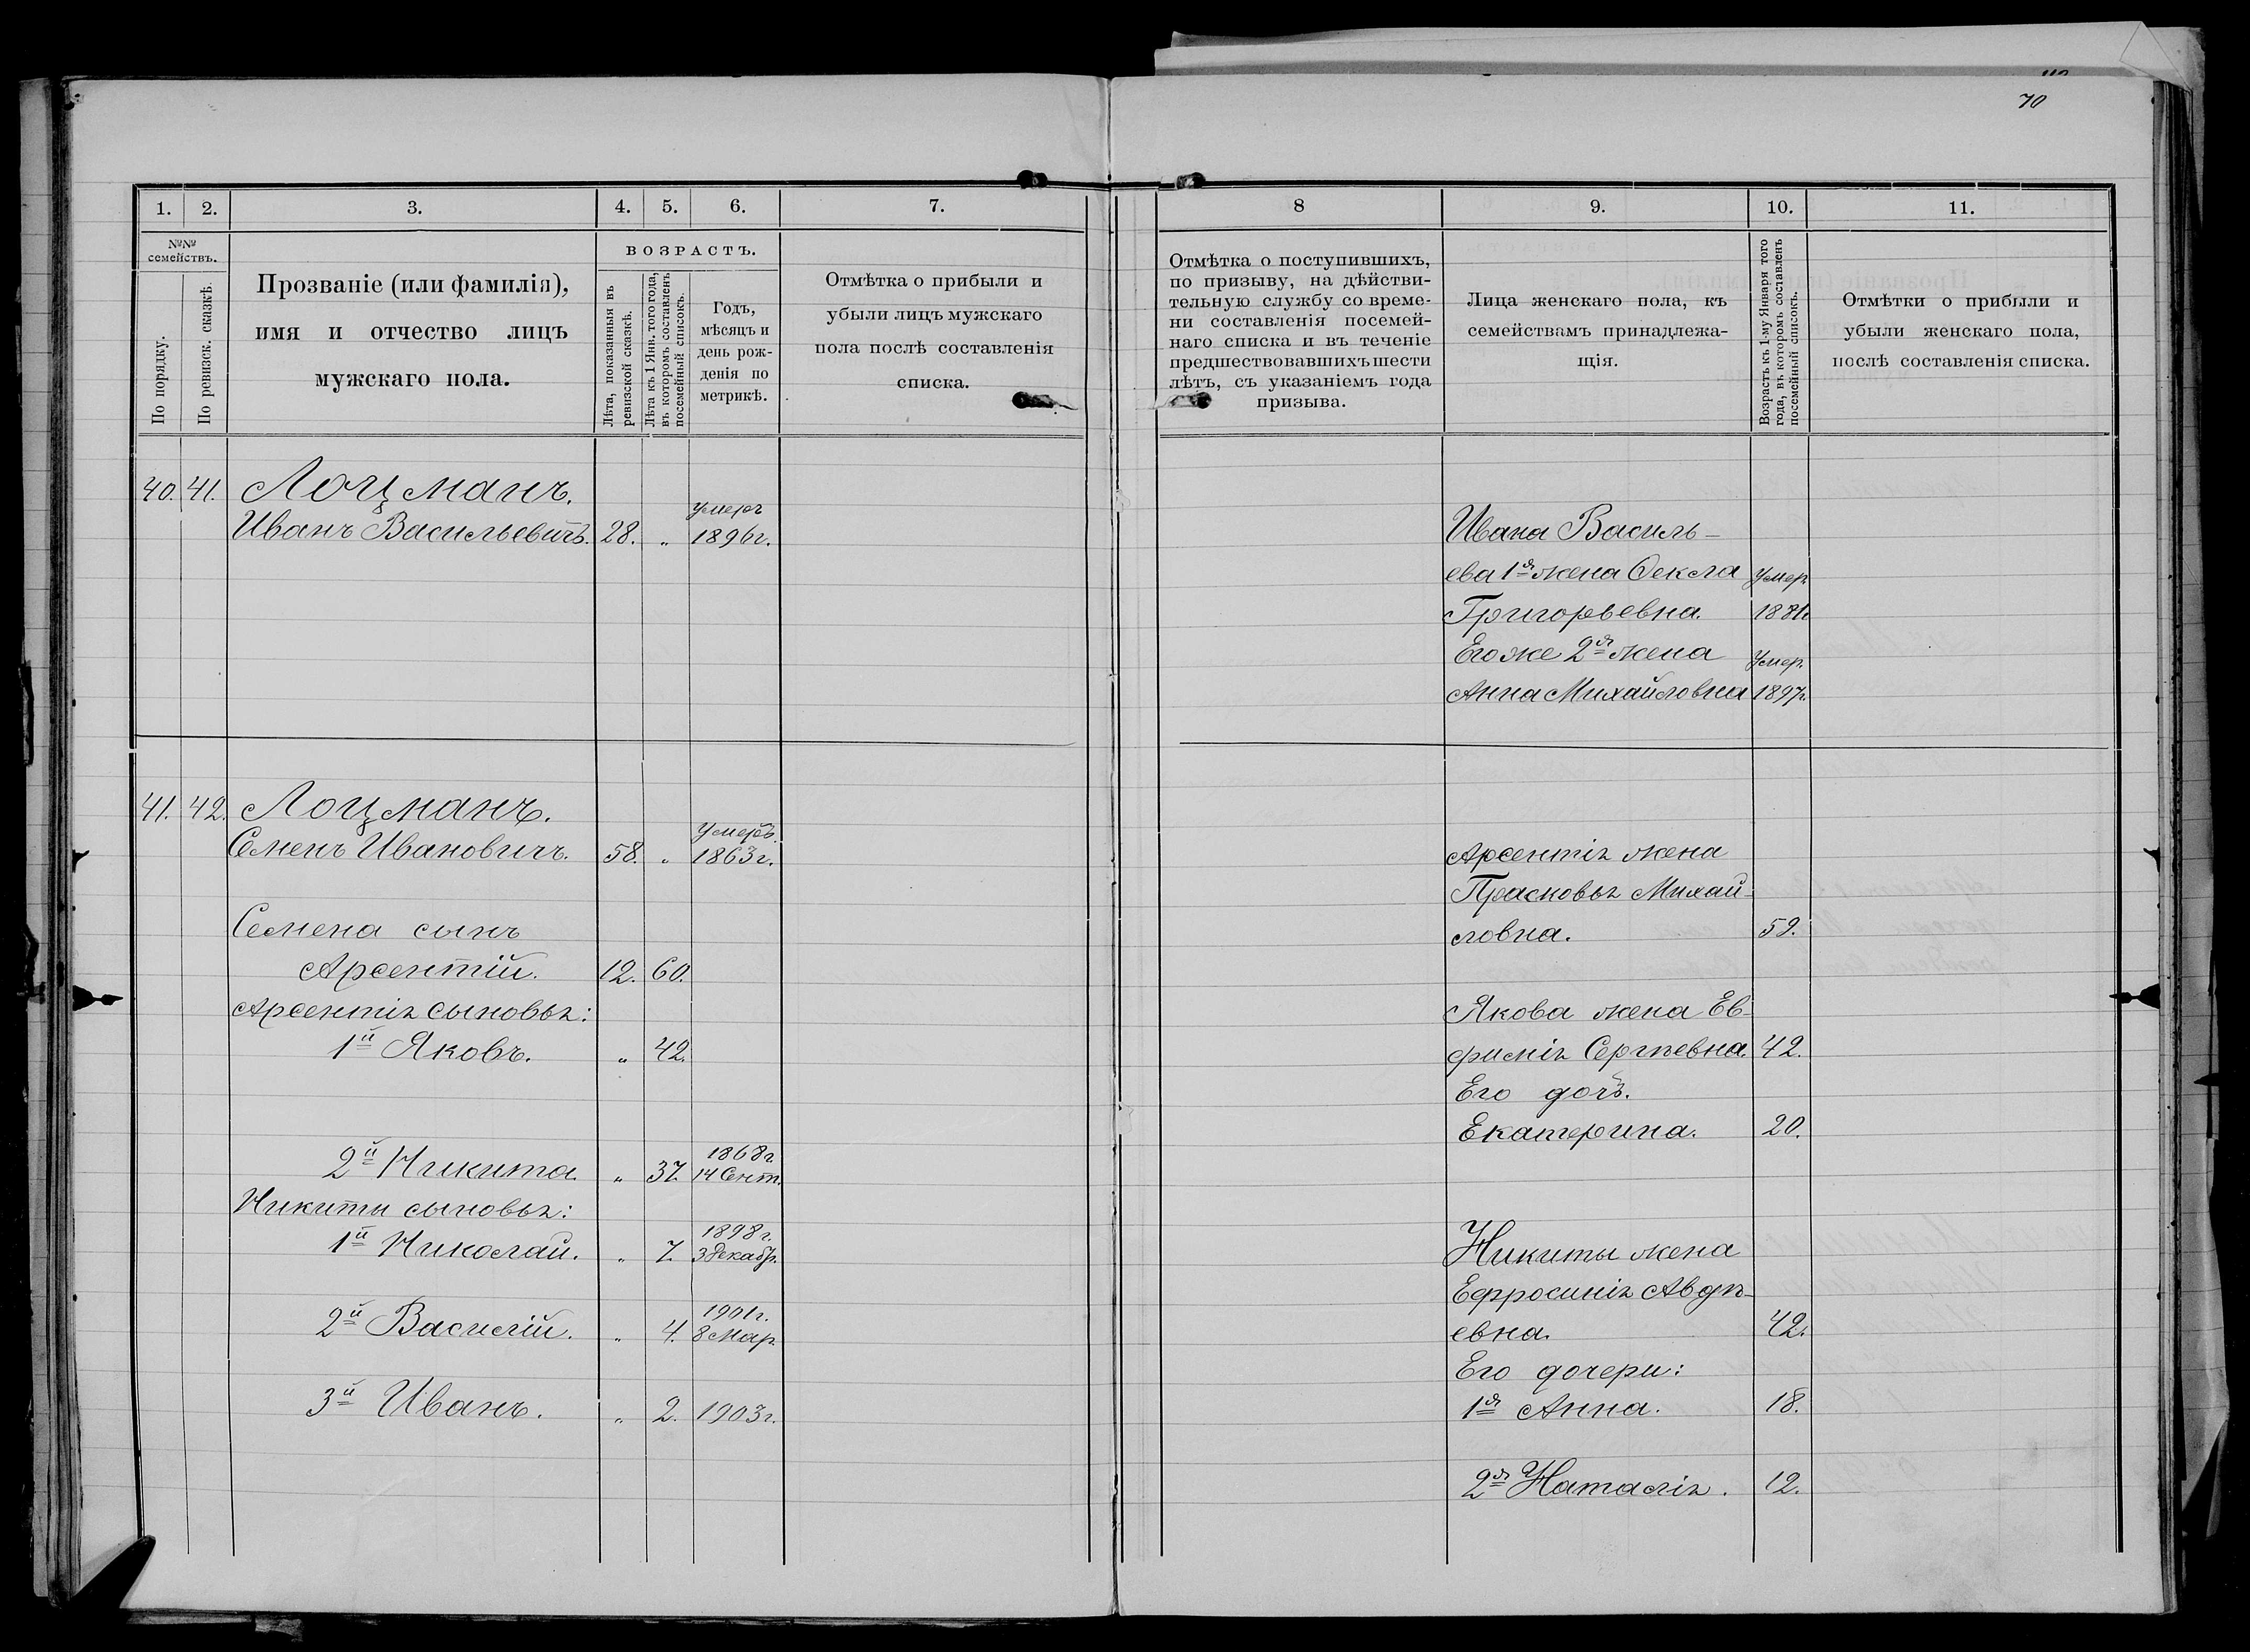 70
1. 2. 3. 4. 5. 6. 7.
№№ семействъ.
По порядку.
По ревизск. сказкѣ.
Прозваніе (или фамилія),
имя и отчество лицъ
мужскаго пола.
ВОЗРАСТЪ.
Лѣта, показанныя въ
ревизской сказкѣ.
Лѣта къ 1 Янв. того года,
въ которомъ составленъ
посемейный списокъ.
Годъ,
мѣсяцъ и
день рож-
денія по
метрикѣ.
Отмѣтка о прибыли и
убыли лицъ мужскаго
пола послѣ составленія
списка.
40. 41. Лоцманъ.
умеръ
Иванъ Васильевичъ. 28. „ 1896г.
41. 42. Лоцманъ.
Умеръ
Семенъ Ивановичъ. 58. „ 1863г.
Семена сынъ
Арсентій. 12. 60.
Арсентія сыновья:
1й Яковъ. „ 42.
1868г.
2й Никита. „ 37. 14 Сент.
Никиты сыновья:
1898г.
1й Николай. „ 7. 3 Декабр.
1901г.
2й Василій. „ 4. 8 Мар.
3й Иванъ. „ 2. 1903г.
8 9. 10. 11.
Отмѣтка о поступившихъ,
по призыву, на дѣйстви-
тельную службу со време-
ни составленія посемей-
наго списка и въ теченіе
предшествовавшихъ шести
лѣтъ, съ указаніемъ года
призыва.
Лица женскаго пола, къ
семействамъ принадлежа-
щія.
Возрастъ къ 1-му Января того
года, въ которомъ составленъ
посемейный списокъ.
Отмѣтки о прибыли и
убыли женскаго пола,
послѣ составленія списка.
Ивана Василь-
ева 1я жена Ѳекла Умер.
Григорьевна. 1881г.
Его же 2я жена Умер.
Анна Михайловна 1897г.
Арсентія жена
Прасковья Михай-
ловна. 59.
Якова жена Ев-
фимія Сергѣевна. 42.
Его дочь.
Екатерина. 20.
Никиты жена
Ефросинія Авдѣ-
евна. 42.
Его дочери:
1я Анна. 18.
2я Наталія. 12.